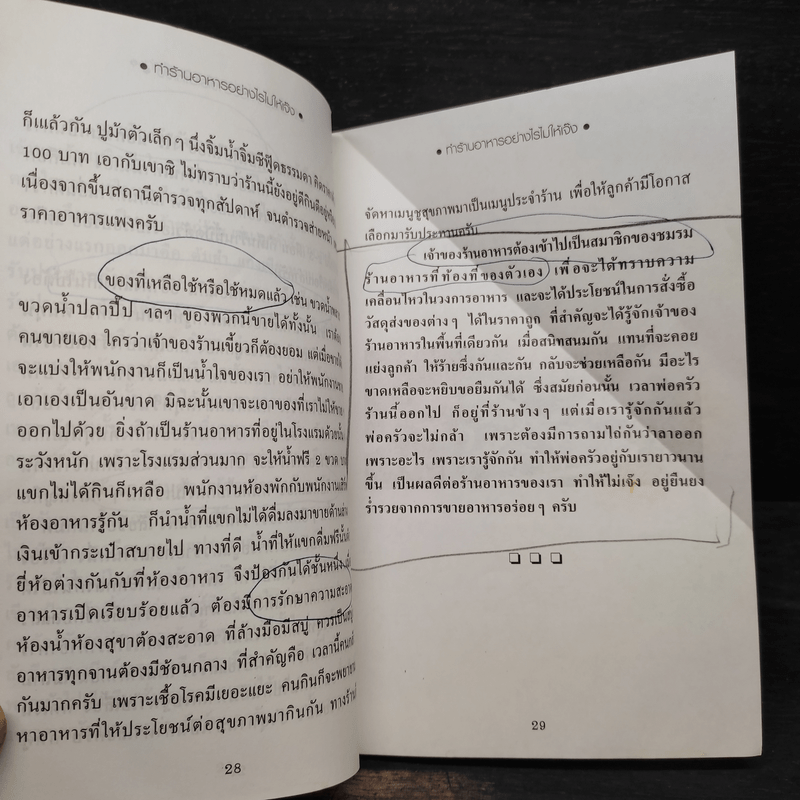 ● ทำร้านอาหารอย่างไรไม่ให้เจ๊ง ●
ก็แล้วกัน ปูม้าตัวเล็ก ๆ นึ่งจิ้มน้ำจิ้มซีฟู้ดธรรมดา คิดราคา
100 บาท เอากับเขาซิ ไม่ทราบว่าร้านนี้ยังอยู่ดีกินดีอยู่หรือ
เนื่องจากขึ้นสถานีตำรวจทุกสัปดาห์ จนตำรวจส่ายหน้า
ราคาอาหารแพงครับ
ของที่เหลือใช้หรือใช้หมดแล้ว เช่น ขวดน้ำพลา
ขวดน้ำปลาปี๊ป ฯลฯ ของพวกนี้ขายได้ทั้งนั้น เรา
คนขายเอง ใครว่าเจ้าของร้านเขี้ยวก็ต้องยอม แต่เมื่อขายได้
จะแบ่งให้พนักงานก็เป็นน้ำใจของเรา อย่าให้พนักงาน
เอาเองเป็นอันขาด มิฉะนั้นเขาจะเอาของที่เราไม่ให้
ออกไปด้วย ยิ่งถ้าเป็นร้านอาหารที่อยู่ในโรงแรมด้วยนั้น
ระวังหนัก เพราะโรงแรมส่วนมาก จะให้น้ำฟรี 2 ขวด
แขกไม่ได้กินก็เหลือ พนักงานห้องพักกับพนักงาน
ห้องอาหารรู้กัน ก็นำน้ำที่แขกไม่ได้ดื่มลงมาขายด้านล่าง
เงินเข้ากระเป๋าสบายไป ทางที่ดี น้ำที่ให้แขกดื่มฟรีนั้น
ยี่ห้อต่างกันกับที่ห้องอาหาร จึงป้องกันได้ชั้นหนึ่ง
อาหารเปิดเรียบร้อยแล้ว ต้องมีการรักษาความสะอาด
ห้องน้ำห้องสุขาต้องสะอาด ที่ล้างมือมีสบู่ ควรเป็น
อาหารทุกจานต้องมีช้อนกลาง ที่สำคัญคือ เวลานี้คน
กันมากครับ เพราะเชื้อโรคมีเยอะแยะ คนกินก็จะพยายาม
หาอาหารที่ให้ประโยชน์ต่อสุขภาพมากินกัน ทางร้าน
28
● ทำร้านอาหารอย่างไรไม่ให้เจ๊ง ●
จัดหาเมนูชูสุขภาพมาเป็นเมนูประจำร้าน เพื่อให้ลูกค้ามีโอกาส
เลือกมารับประทานครับ
เจ้าของร้านอาหารต้องเข้าไปเป็นสมาชิกของชมรม
ร้านอาหารที่ ท้องที่ ของตัวเอง เพื่อจะได้ทราบความ
เคลื่อนไหวในวงการอาหาร และจะได้ประโยชน์ในการสั่งซื้อ
วัสดุส่งของต่าง ๆ ได้ในราคาถูก ที่สำคัญจะได้รู้จักเจ้าของ
ร้านอาหารในพื้นที่เดียวกัน เมื่อสนิทสนมกัน แทนที่จะคอย
แย่งลูกค้า ให้ร้ายซึ่งกันและกัน กลับจะช่วยเหลือกัน มีอะไร
ขาดเหลือจะหยิบขอยืมกันได้ ซึ่งสมัยก่อนนั้น เวลาพ่อครัว
ร้านนี้ออกไป ก็อยู่ที่ร้านข้าง ๆ แต่เมื่อเรารู้จักกันแล้ว
พ่อครัวจะไม่กล้า เพราะต้องมีการถามไถ่กันว่าลาออก
เพราะอะไร เพราะเรารู้จักกัน ทำให้พ่อครัวอยู่กับเรายาวนาน
ขึ้น เป็นผลดีต่อร้านอาหารของเรา ทำให้ไม่เจ๊ง อยู่ยืนยง
ร่ำรวยจากการขายอาหารอร่อย ๆ ครับ
29